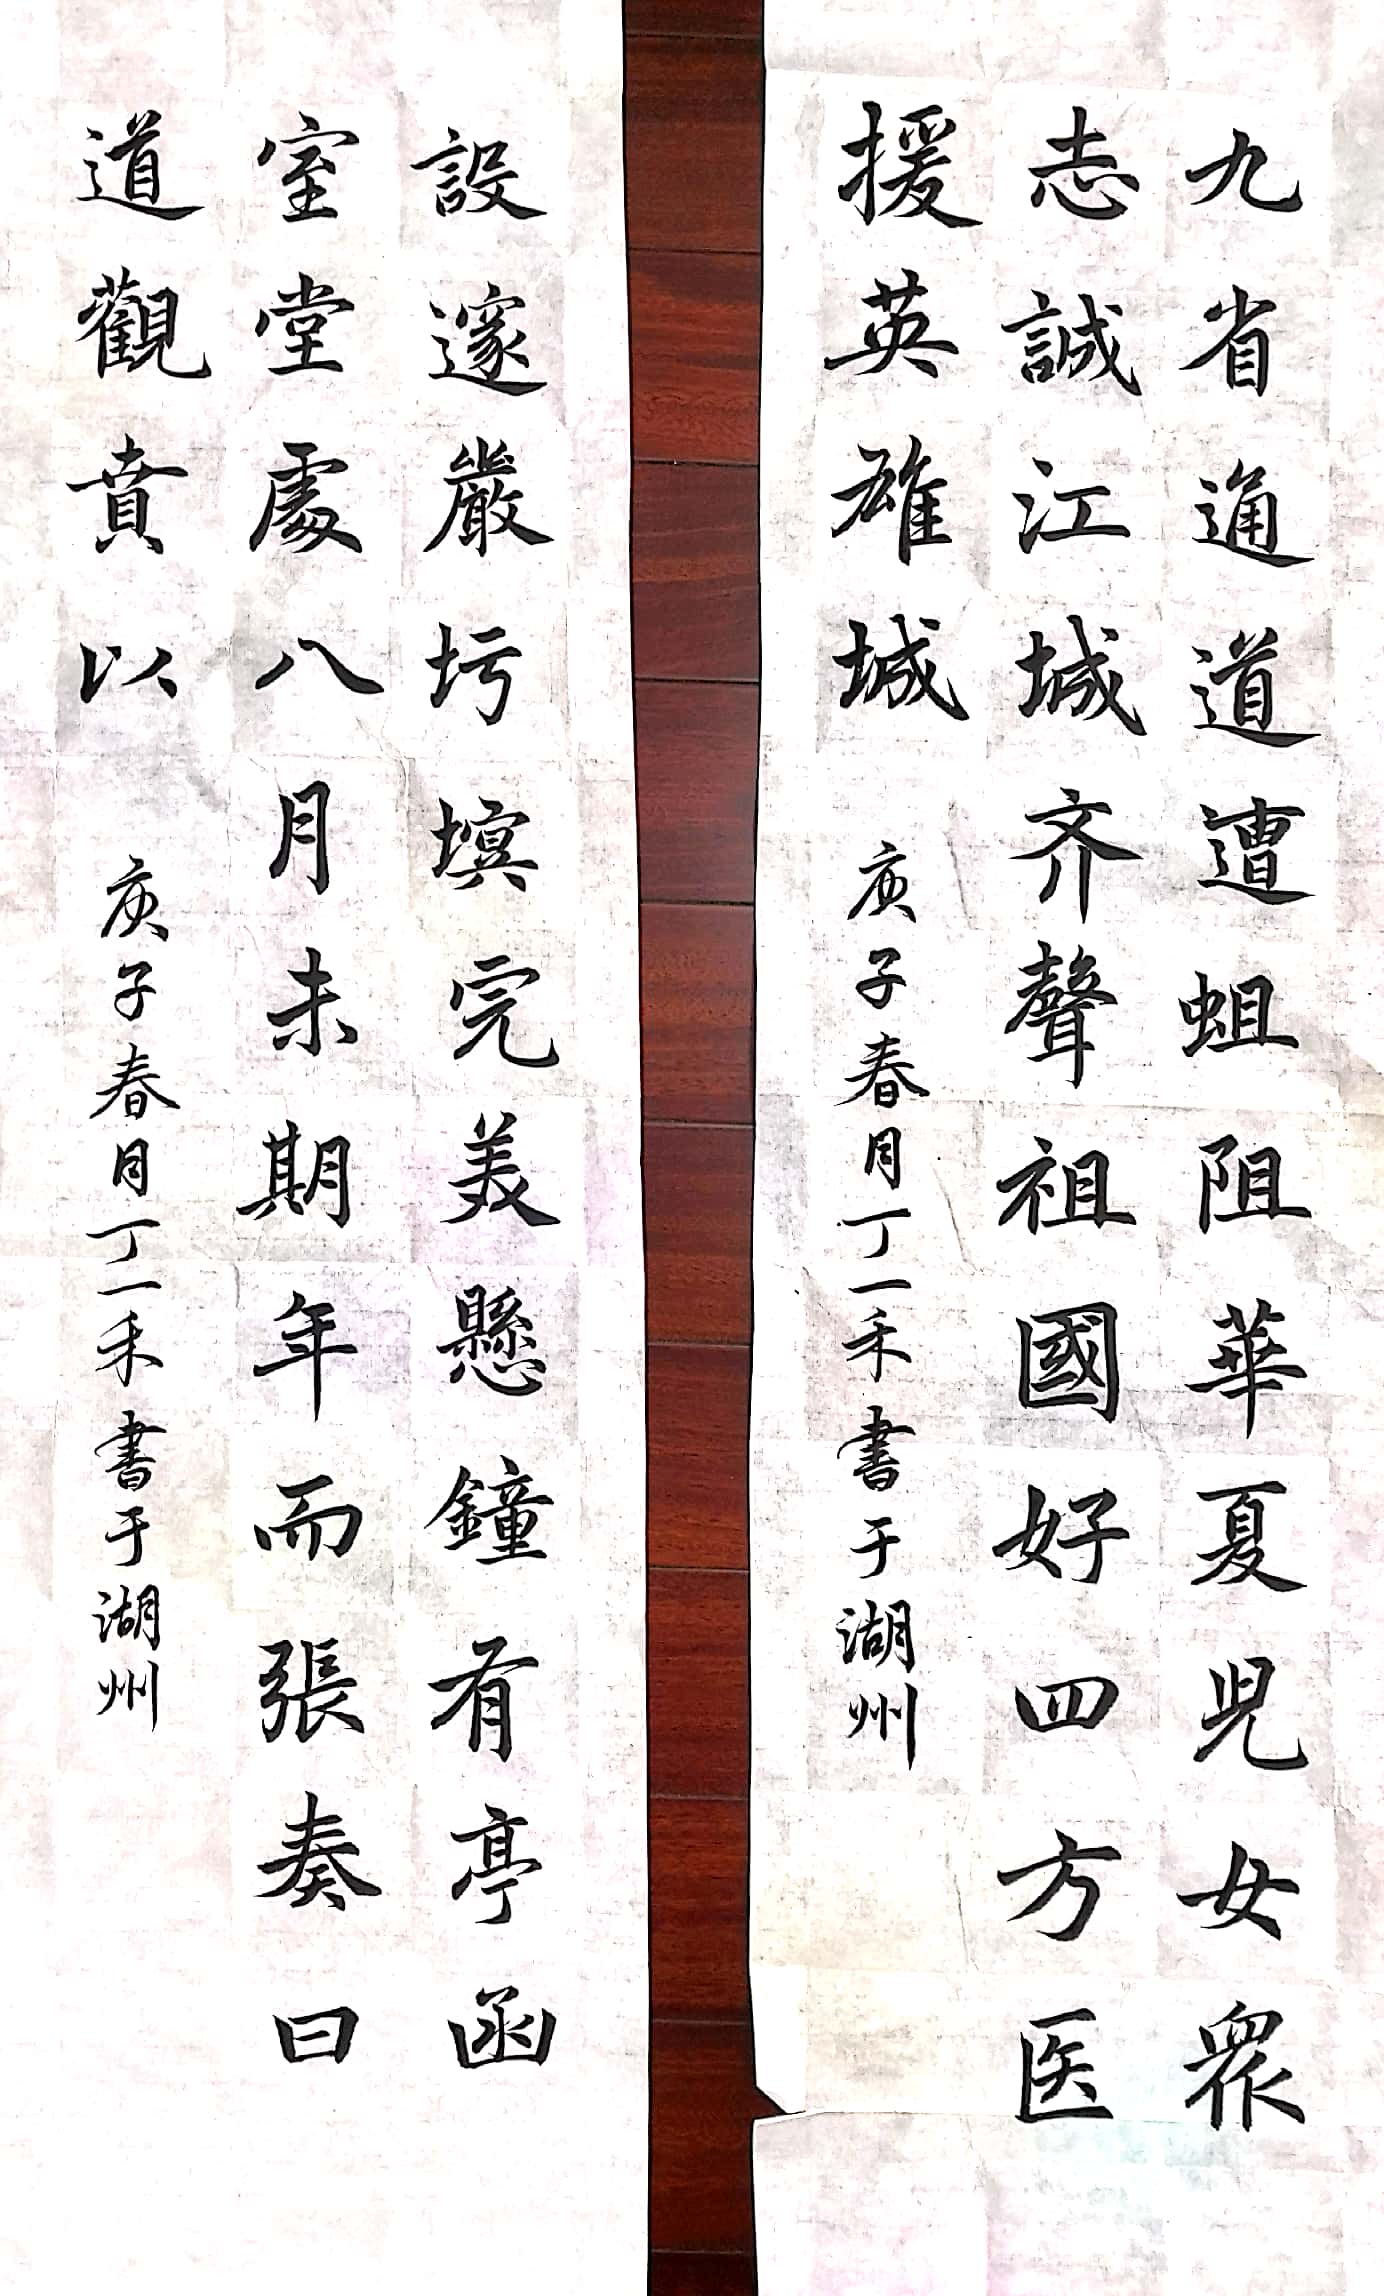 九省通道遭蛆阻華夏児女衆
志誠江城齐聲祖國好四方医
援英雄城
庚子春月丁一禾書于湖州
設邃嚴圬塓完美懸鐘有亭函
室堂處八月未期年而張奏曰
道觀賁以
庚子春月丁一禾書于湖州